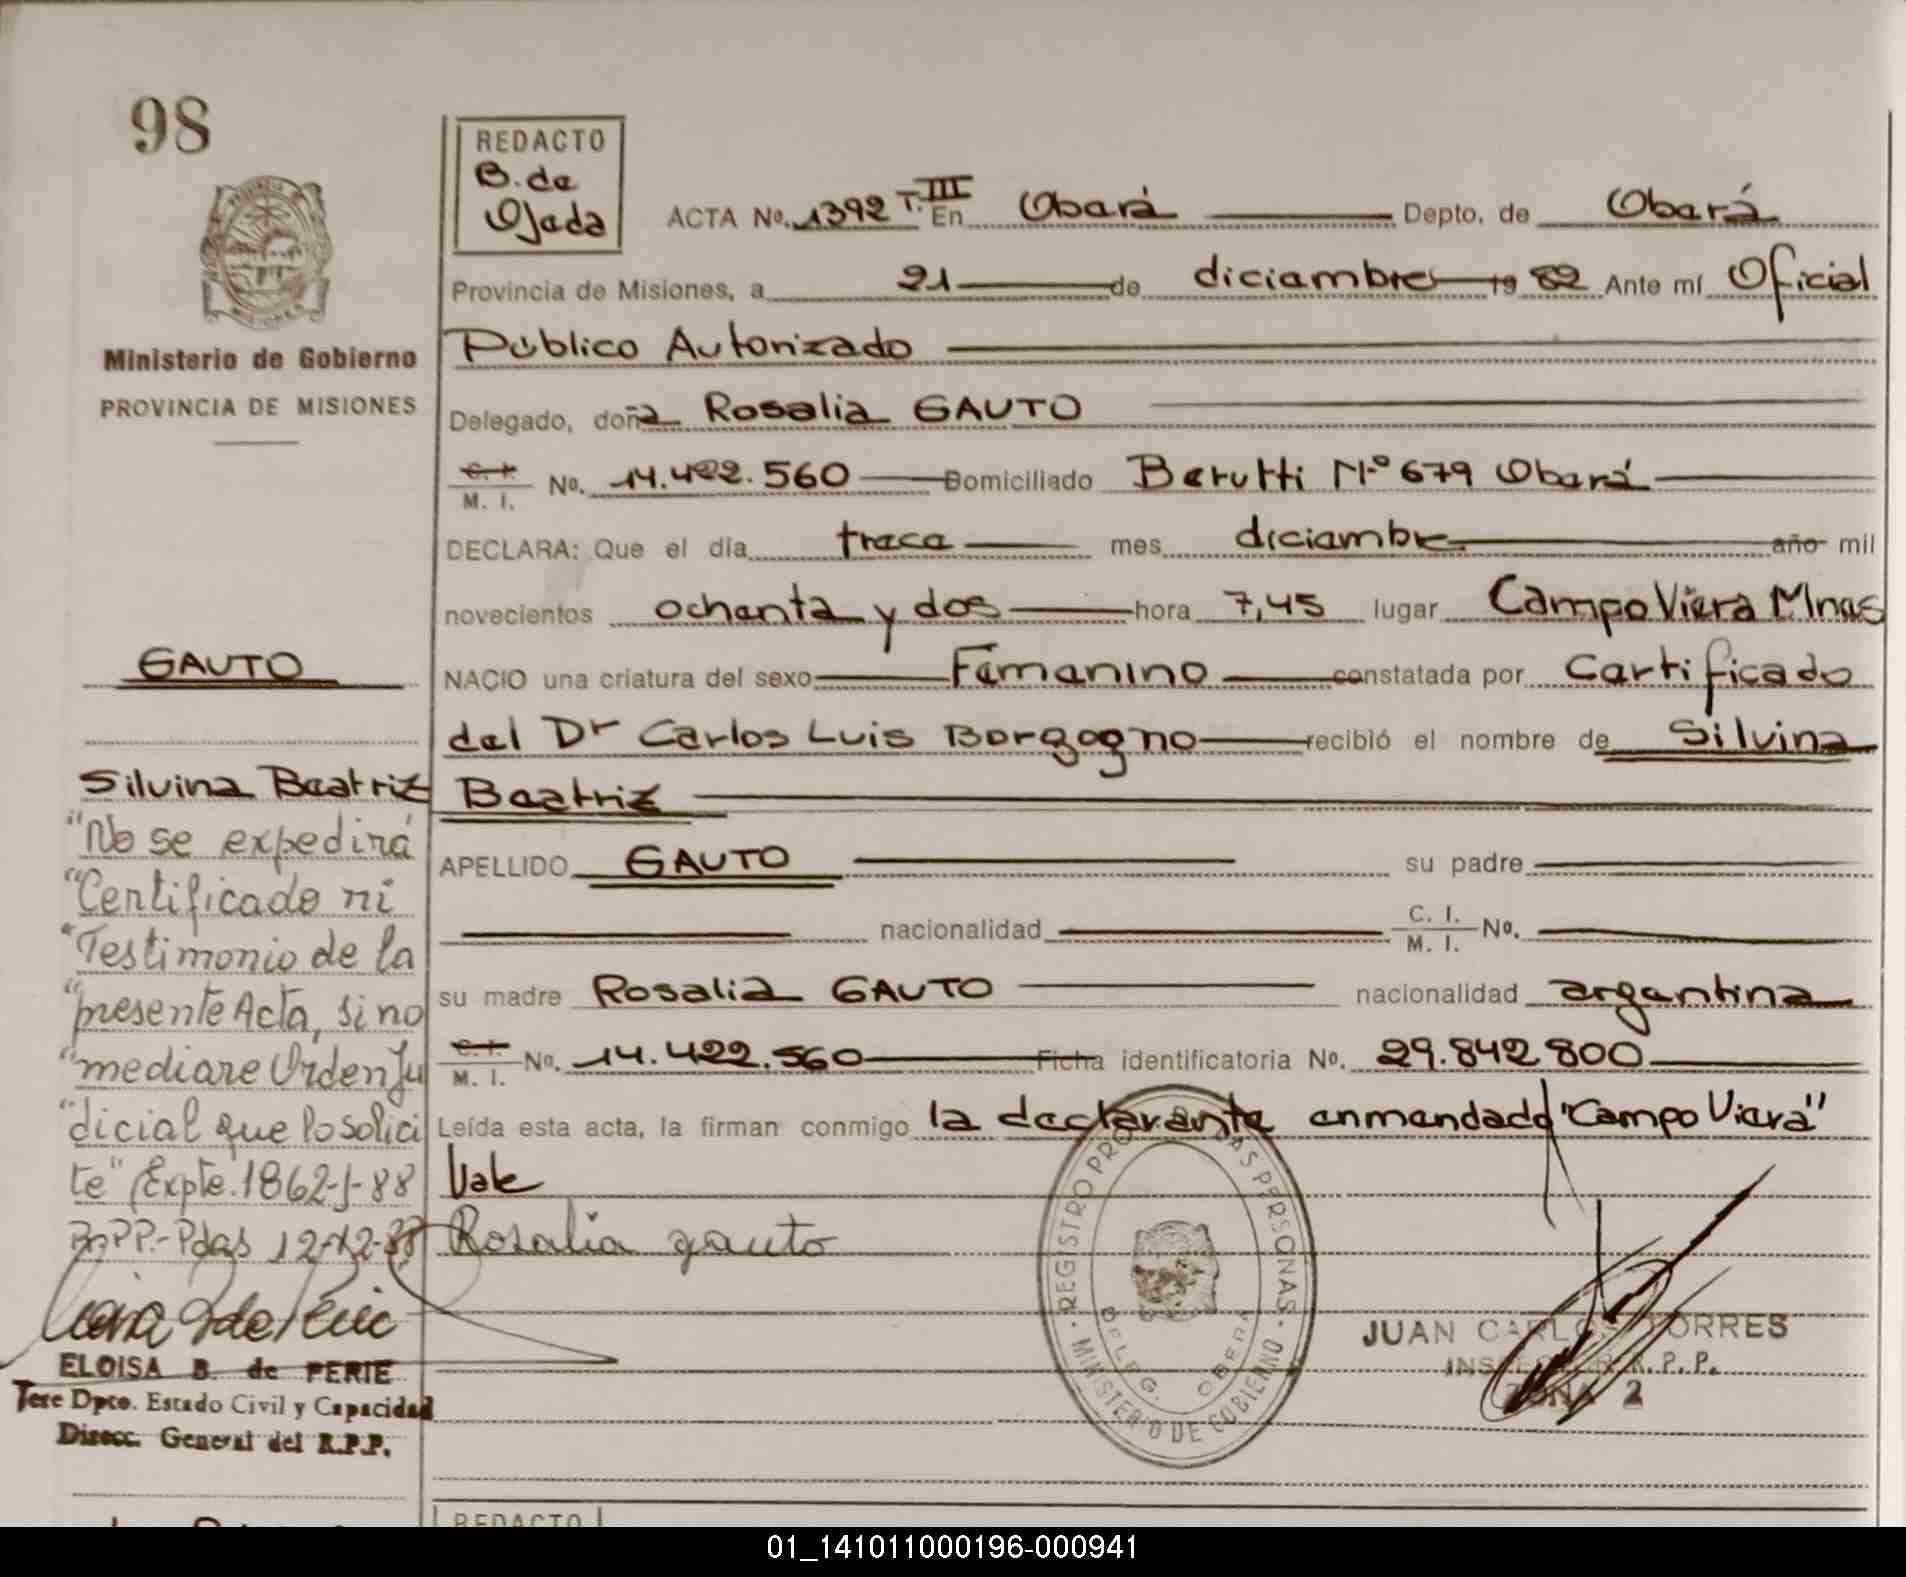 98
REDACTO
B. de
Ojeda
ACTA No. 1392 T. III En Oberá Depto. de Oberá
Provincia de Misiones, a 21 de diciembre 19 82 Ante mí Oficial
Público Autorizado
Ministerio de Gobierno
PROVINCIA DE MISIONES
Delegado, doña Rosalia GAUTO
C. I. M. I. No. 14.422.560 Domiciliado Berutti Nº 679 Oberá
DECLARA: Que el día trece mes diciembre año mil
novecientos ochenta y dos hora 7,45 lugar Campo Viera Mnes
GAUTO
NACIO una criatura del sexo Femenino constatada por Certificado
del Dr Carlos Luis Borgogno recibió el nombre de Silvina
Silvina Beatriz
Beatriz
"No se expedirá
"Certificado ni
"Testimonio de la
"presente Acta, si no
"mediare Orden Ju
"dicial que lo solici
te" (Expte. 1862-J-88
R.P.P.-Pdas 12-12-88
APELLIDO GAUTO su padre
nacionalidad C. I. M. I. No.
su madre Rosalia GAUTO nacionalidad argentina
C. I. M. I. No. 14.422.560 Ficha identificatoria No. 29.842.800
Leída esta acta, la firman conmigo la declarante enmendado "Campo Viera"
Vale
Rosalia gauto
REGISTRO PROV. DE LAS PERSONAS
MINISTERIO DE GOBIERNO
DELEG. OBERA
JUAN CARLOS TORRES
INSPECTOR R.P.P.
ZONA 2
ELOISA B. de PERIE
Jefe Dpto. Estado Civil y Capacidad
Direcc. General del R.P.P.
REDACTO
01_141011000196-000941